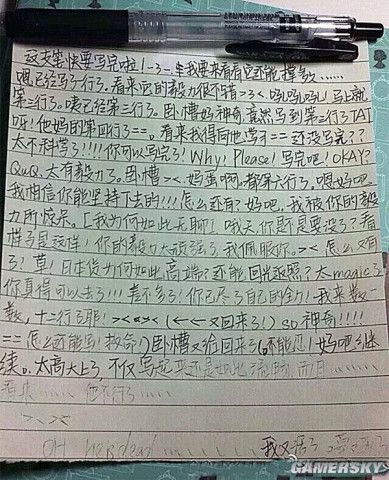 这支笔快要写完啦!-3-来我要来看看它还能撑多……
嗯已经写了一行了。看来它的毅力很不错>3<吼吼吼!马上就
第三行了。咦已经第三行了。卧槽好神奇竟然写到第三行了TAT
呀!他妈的第四行了==。看来我得向他学习==还没写完??
太不科学了!!!!你可以写完了!Why! Please!写完吧!OKAY?
QuQ.太有毅力了。卧槽><妈蛋啊。都第六行了。嗯.好吧。
我相信你能坚持下去的!!!怎么还有?好吧.我被你的毅
力所惊呆。[我为何如此无聊]哦天.你是不是要没了?看
样子是这样!你的毅力太顽强了.我佩服你。><怎么又有
了?草!日本货为何如此高端?还能回光返照?大magic了
你真得可以去了!!!差不多了!你已尽了自己的全力!我来数一
数,十二行了耶!><(←←又回来了!)so神奇!!!!
==怎么还能写!救命!)卧槽又给回来了!好吧继
续。太高大上了,不仅写起来还是如此流畅,而且
看来……他不行了……
>、><
OH he is dead……
我又活了
GAMERSKY